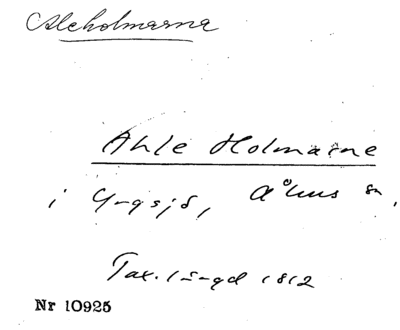 Aleholmarna
Ahle Holmarne
i Yngsjö, Åhus sn,
Tax. längd 1812
Nr 10925